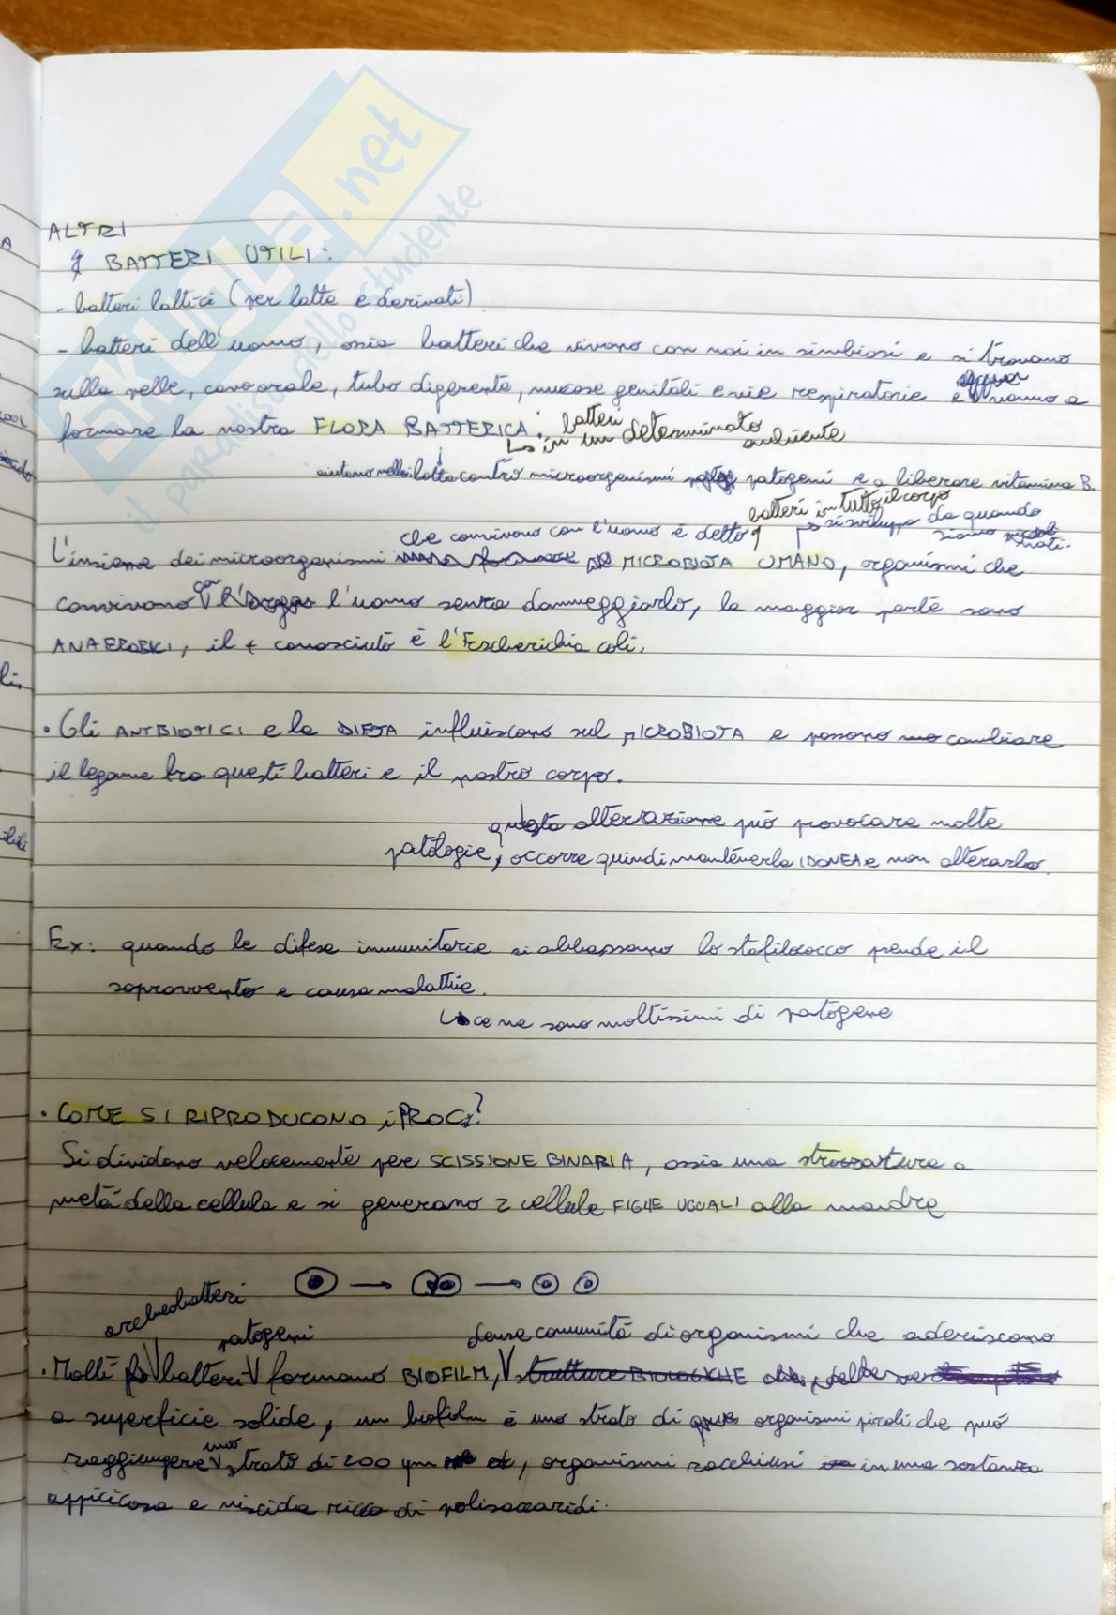 ALTRI
BATTERI UTILI:
- batteri lattici (per latte e derivati)
- batteri dell'uomo, ossia batteri che vivono con noi in simbiosi e si trovano
sulla pelle, cavo orale, tubo digerente, mucose genitali e vie respiratorie e vanno a
formare la nostra FLORA BATTERICA: batteri
in un determinato ambiente
aiutano nella lotta contro microorganismi patogeni e a liberare vitamina B.
batteri in tutto il corpo
che convivono con l'uomo è detto si sviluppa da quando
siamo nati.
L'insieme dei microorganismi MICROBIOTA UMANO, organismi che
convivono con l'uomo senza danneggiarlo, la maggior parte sono
ANAEROBICI, il + conosciuto è l'Escherichia coli.
• Gli ANTBIOTICI e la DIETA influiscono sul MICROBIOTA e possono cambiare
il legame tra questi batteri e il nostro corpo.
questa alterazione può provocare molte
patologie, occorre quindi mantenerla IDONEA e non alterarla.
Ex: quando le difese immunitarie si abbassano lo stafilococco prende il
sopravvento e causa malattie.
ce ne sono moltissimi di patogene
• COME SI RIPRODUCONO i PROC?
Si dividono velocemente per SCISSIONE BINARIA, ossia una strozzatura a
metà della cellula e si generano 2 cellule FIGLIE UGUALI alla madre
archeobatteri
patogeni dense comunità di organismi che aderiscono
• Molti batteri formano BIOFILM, strutture BIOLOGICHE
a superficie solide, un biofilm è uno strato di organismi piccoli che può
raggiungere uno strato di 200 μm, organismi racchiusi in una sostanza
appicicosa e viscida ricca di polisaccaridi.
il paradiso dello studente
.net